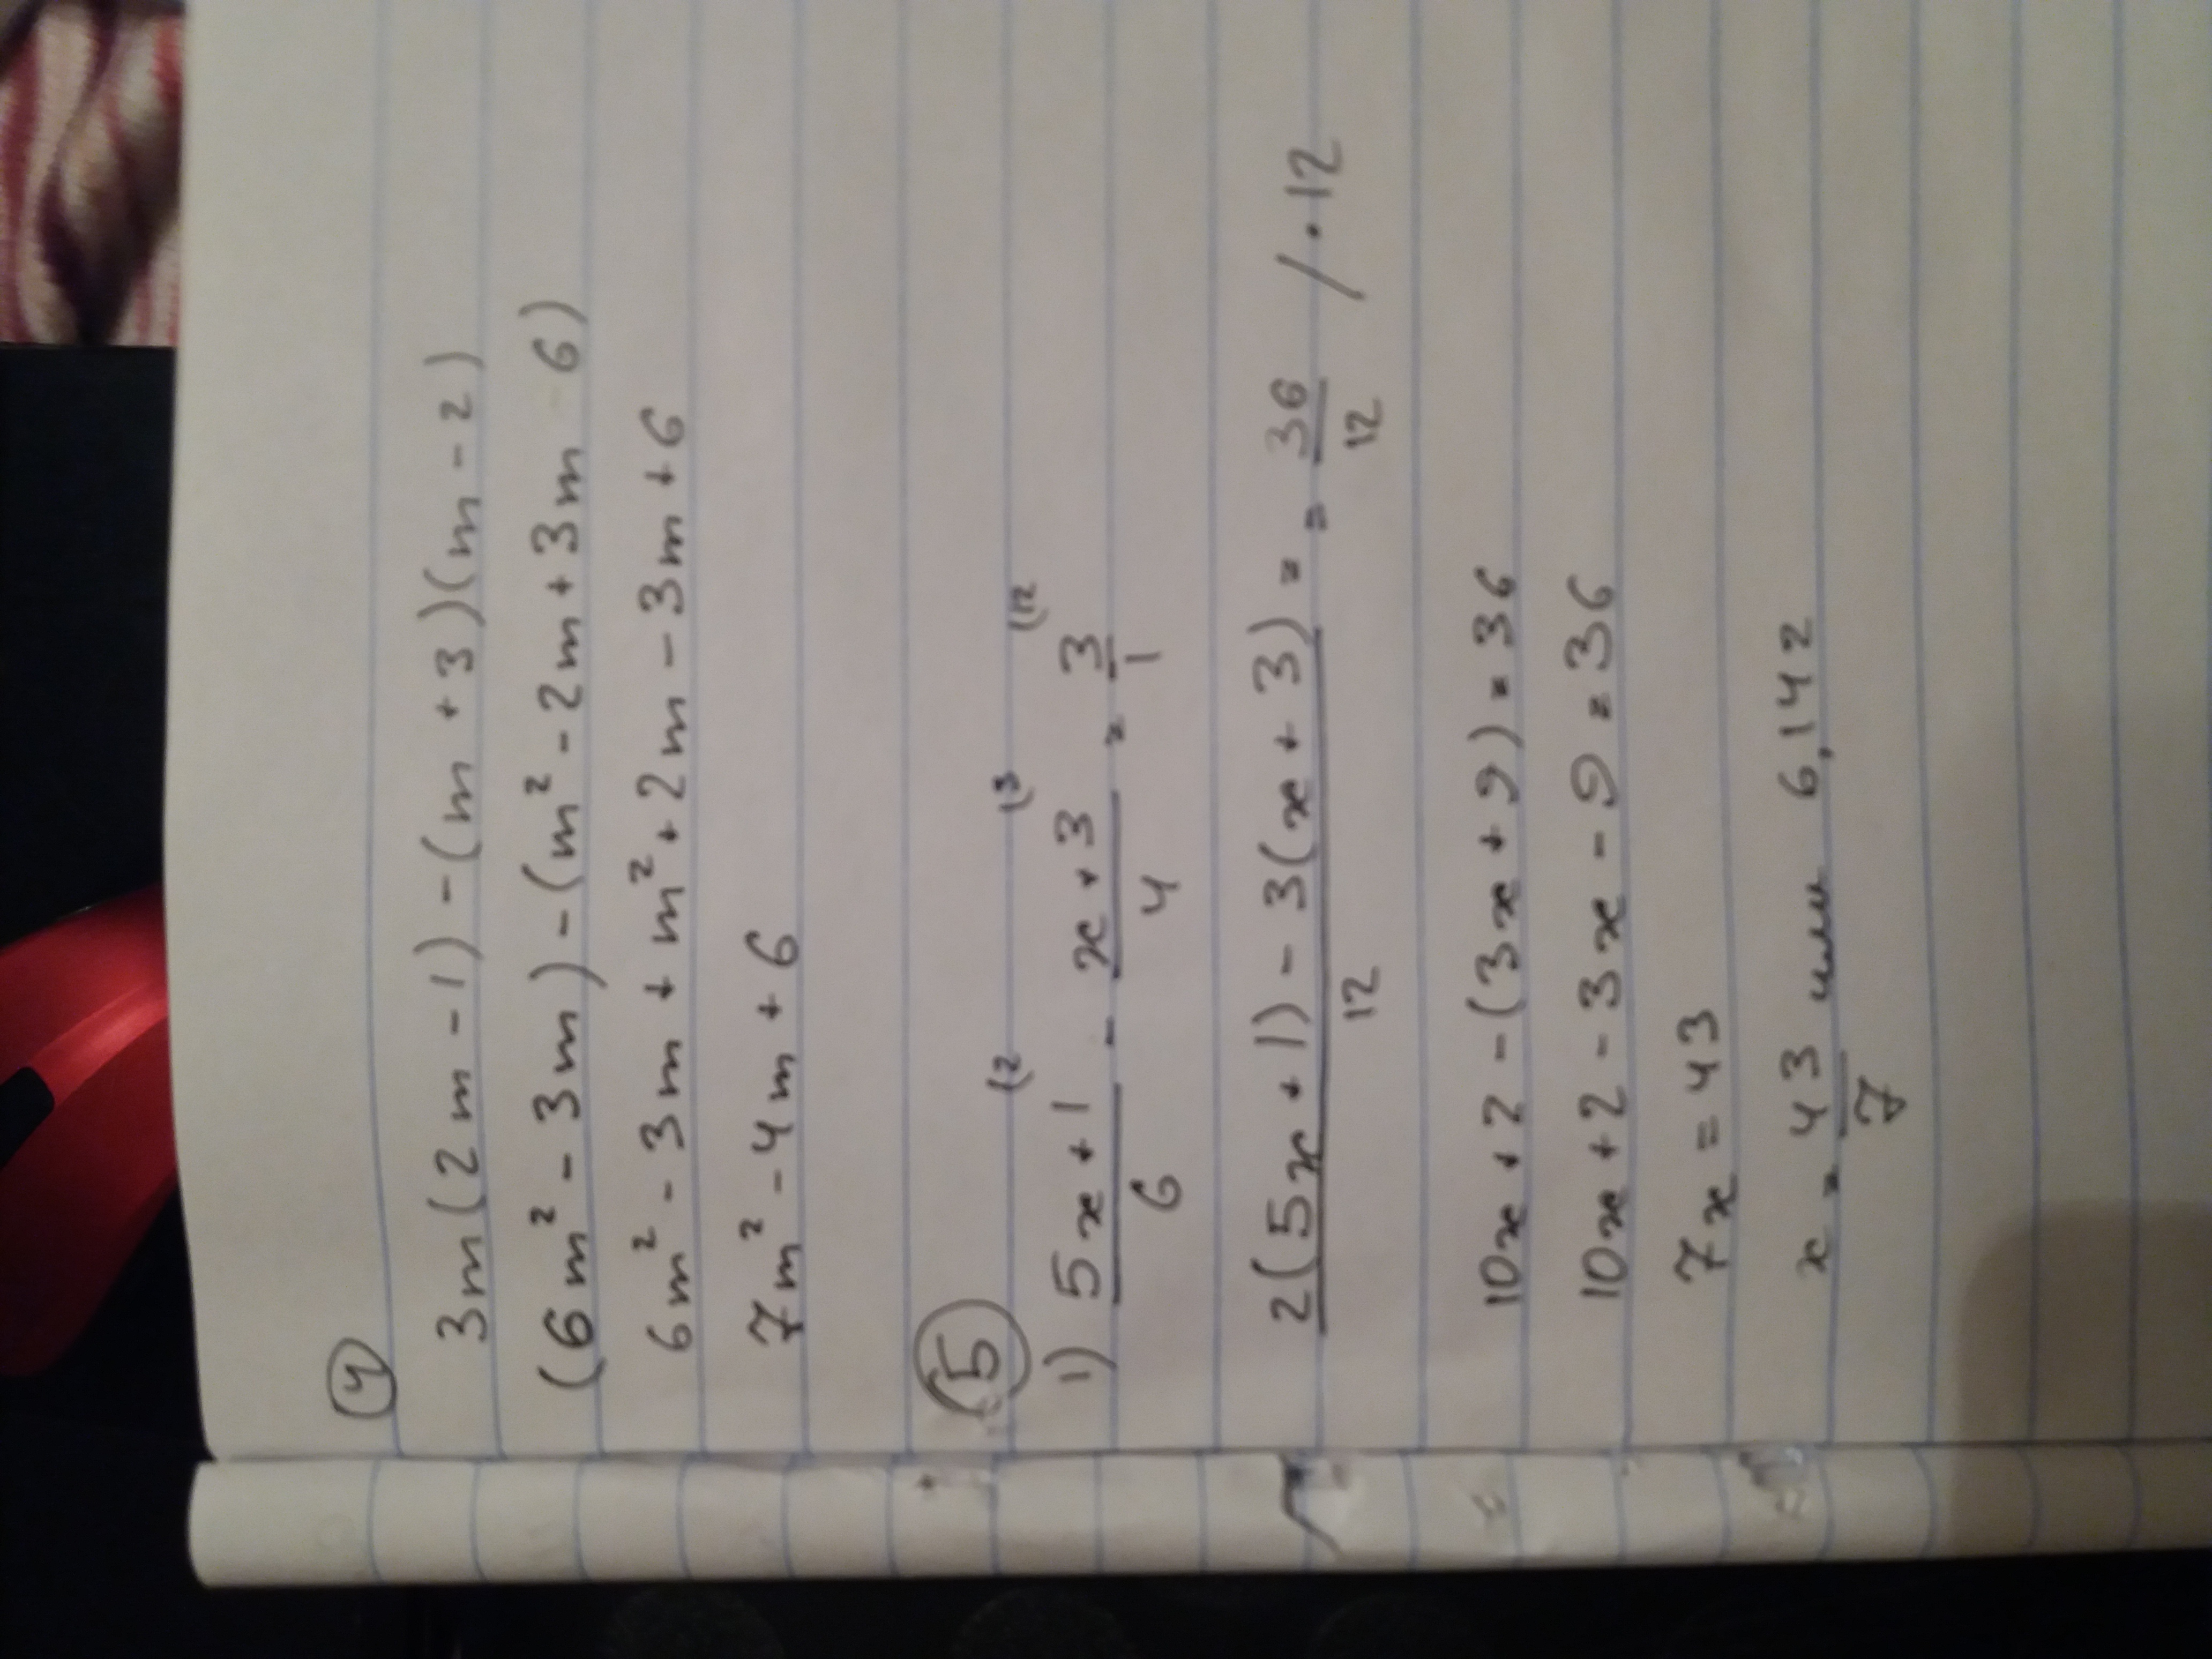 ④
3m(2m-1)-(m+3)(m-2)
(6m²-3m)-(m²-2m+3m 6)
6m²-3m+m²+2m-3m+6
7m²-4m+6
⑤
1) (5x+1)/6 (2 - (x+3)/4 (3 = 3/1 (12
(2(5x+1)-3(x+3))/12 = = 36/12 /·12
10x+2-(3x+9)=36
10x+2-3x-9=36
7x=43
x=43/7 или 6,142